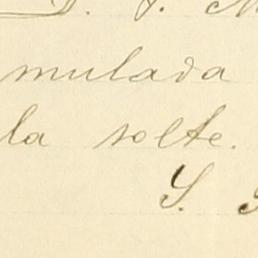 mulada
la solte.
S.